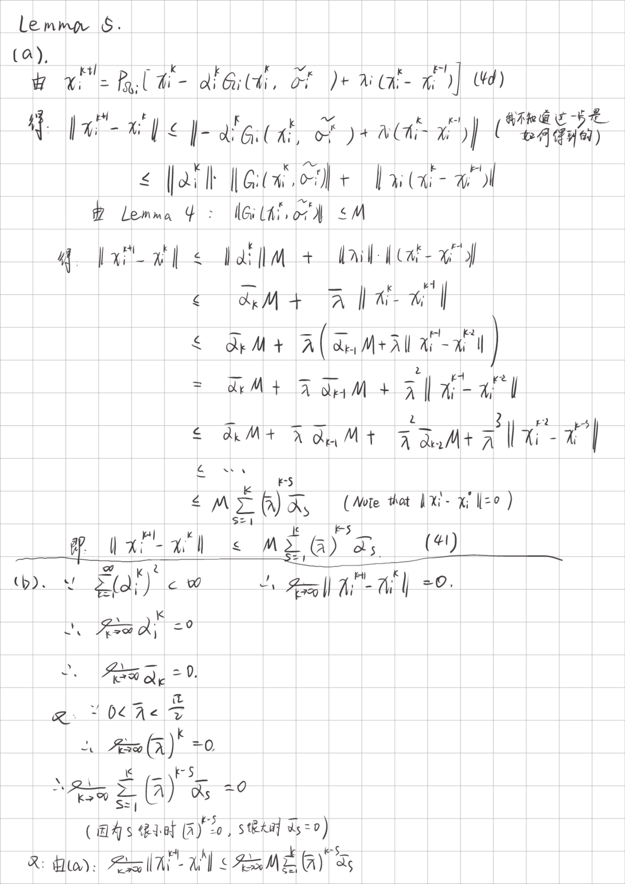 Lemma 5.
(a).
由 x_i^{k+1} = P_{Ω_i}[x_i^k - α_i^k G_i(x_i^k, \tilde{σ_i^k}) + λ_i(x_i^k - x_i^{k-1})] (4d)
得: ‖x_i^{k+1} - x_i^k‖ ≤ ‖-α_i^k G_i(x_i^k, \tilde{σ_i^k}) + λ_i(x_i^k - x_i^{k-1})‖ (我不知道这一步是如何得到的)
≤ ‖α_i^k‖·‖G_i(x_i^k, \tilde{σ_i^k})‖ + ‖λ_i(x_i^k - x_i^{k-1})‖
由 Lemma 4: ‖G_i(x_i^k, \tilde{σ_i^k})‖ ≤ M
得: ‖x_i^{k+1} - x_i^k‖ ≤ ‖α_i^k‖M + ‖λ_i‖·‖(x_i^k - x_i^{k-1})‖
≤ \bar{α_k}M + \bar{λ}‖x_i^k - x_i^{k-1}‖
≤ \bar{α_k}M + \bar{λ}(\bar{α_{k-1}}M + \bar{λ}‖x_i^{k-1} - x_i^{k-2}‖)
= \bar{α_k}M + \bar{λ}\bar{α_{k-1}}M + \bar{λ}^2‖x_i^{k-1} - x_i^{k-2}‖
≤ \bar{α_k}M + \bar{λ}\bar{α_{k-1}}M + \bar{λ}^2\bar{α_{k-2}}M + \bar{λ}^3‖x_i^{k-2} - x_i^{k-3}‖
≤ ...
≤ M∑_{s=1}^{k}(\bar{λ})^{k-s}\bar{α_s} (Note that ‖x_i^1 - x_i^0‖=0)
即: ‖x_i^{k+1} - x_i^k‖ ≤ M∑_{s=1}^{k}(\bar{λ})^{k-s}\bar{α_s}. (41)
(b). ∵ ∑_{k=1}^{∞}(α_i^k)^2 < ∞ ∴ lim_{k→∞}‖x_i^{k+1} - x_i^k‖ = 0.
∴ lim_{k→∞} α_i^k = 0
∴ lim_{k→∞} \bar{α_k} = 0.
又 ∵ 0 < \bar{λ} < \frac{π}{2}
∴ lim_{k→∞}(\bar{λ})^k = 0.
∴ lim_{k→∞} ∑_{s=1}^{k}(\bar{λ})^{k-s}\bar{α_s} = 0
(因为s很小时(\bar{λ})^{k-s}=0, s很大时\bar{α_s}=0)
又: 由(a): lim_{k→∞}‖x_i^{k+1} - x_i^k‖ ≤ lim_{k→∞} M∑_{s=1}^{k}(\bar{λ})^{k-s}\bar{α_s}